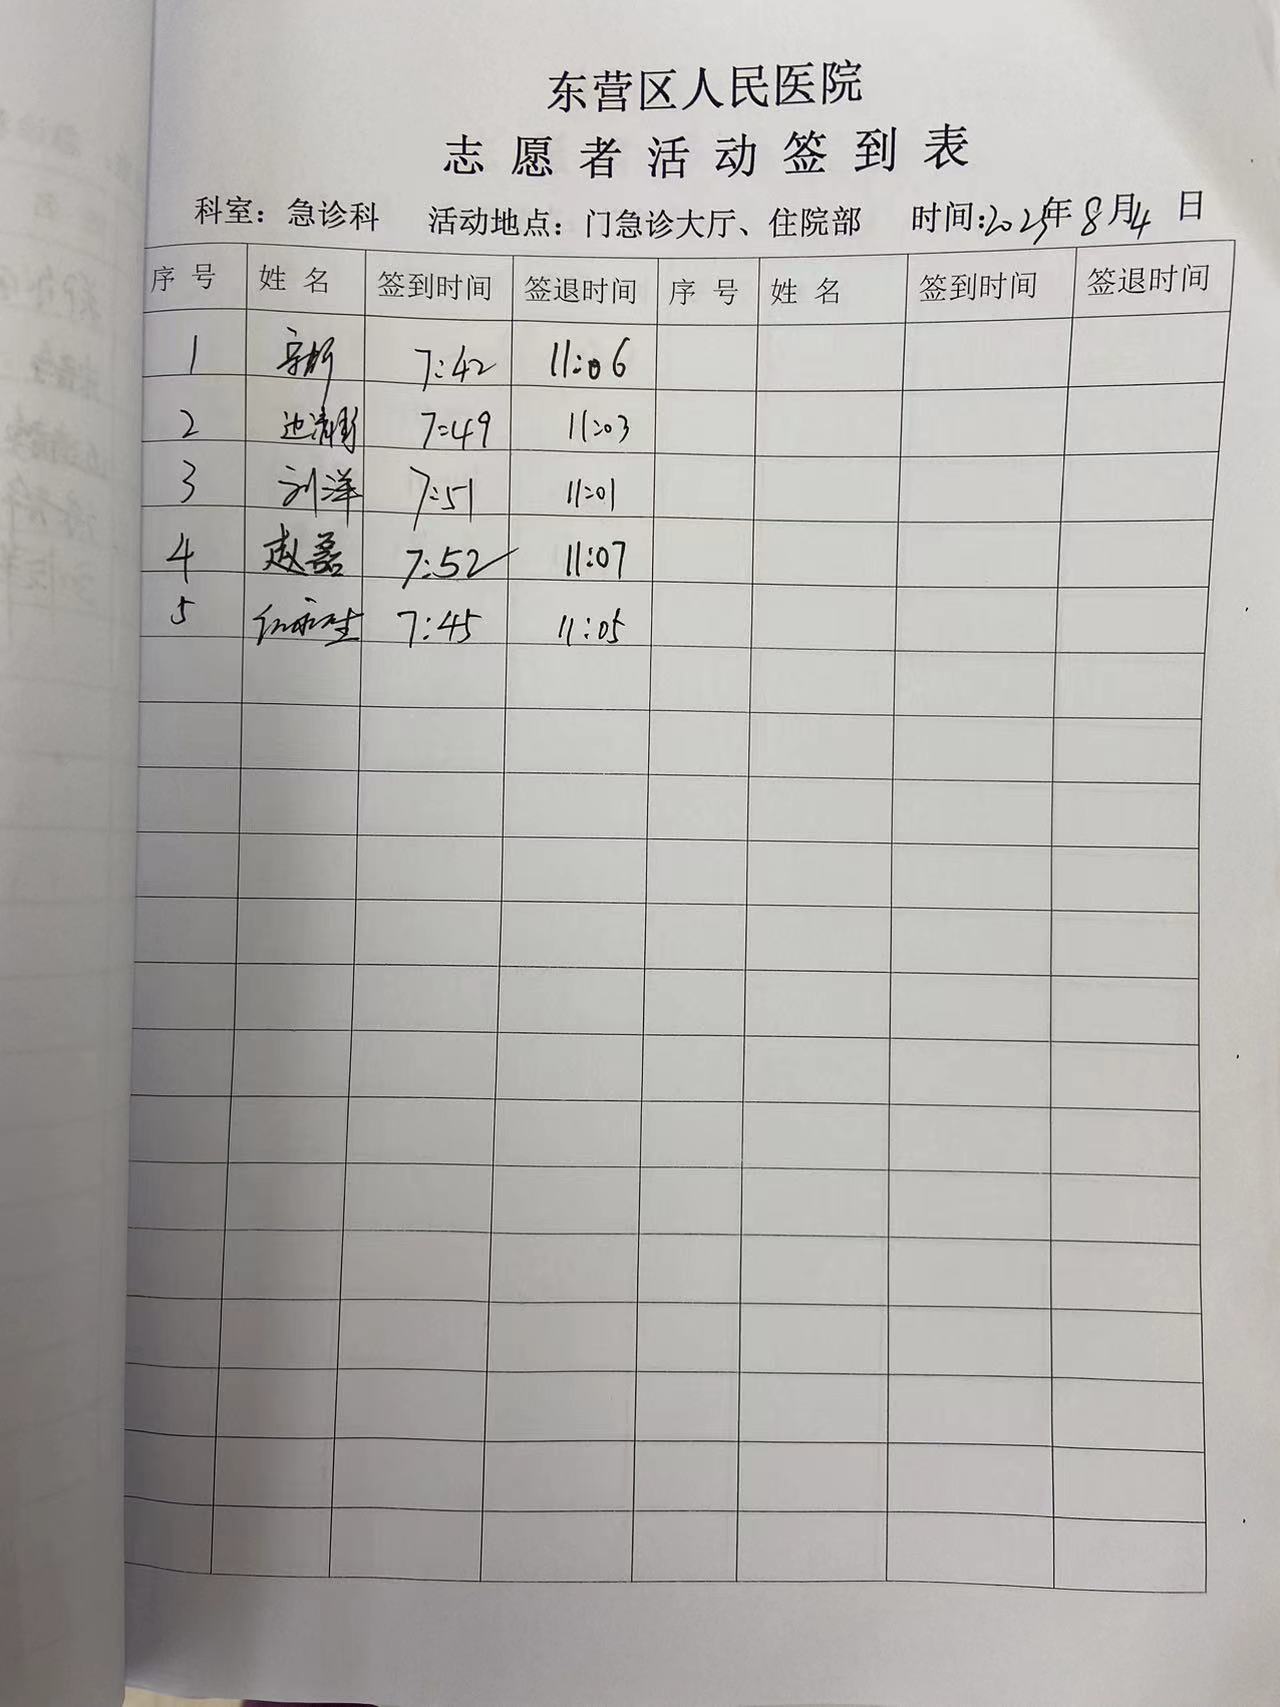 东营区人民医院
志愿者活动签到表
科室：急诊科 活动地点：门急诊大厅、住院部 时间:2025年8月4日
序号 姓名 签到时间 签退时间 序号 姓名 签到时间 签退时间
1 7:42 11:06
2 7:49 11:03
3 刘洋 7:51 11:01
4 赵磊 7:52 11:07
5 7:45 11:05